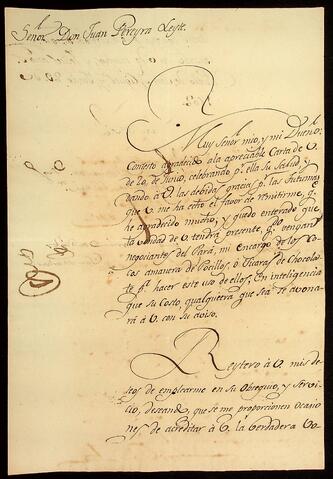 Señor Don Juan Pereyra Leyte.
Muy Señor mio, y mi Dueño:
Contexto agradecido ala apreciable Carta de V.
de 20, de Junio, celebrando pr. ella su Salud, y
dando à V las debidas gracias pr. las
que V me ha echo el favor de remitirme, qe.
he agradecido mucho, y quedo enterado que
la bondad de V. tendrá presente, qdo. vengan
Negociantes del Pará, mi encargo de los
amanera de Pocillos, ò Xicaras de Chocola-
te pa. hacer este uso de ellos, en inteligencia
que su Costo, qualquiera que sea se avona-
rà à V. con su aviso.
Reytero à V mis de-
seos de emplearme en su Obsequio, y servi-
cio, deseando, que se me proporcionen ocacio-
nes de acreditar à V. la verdadera Vo-